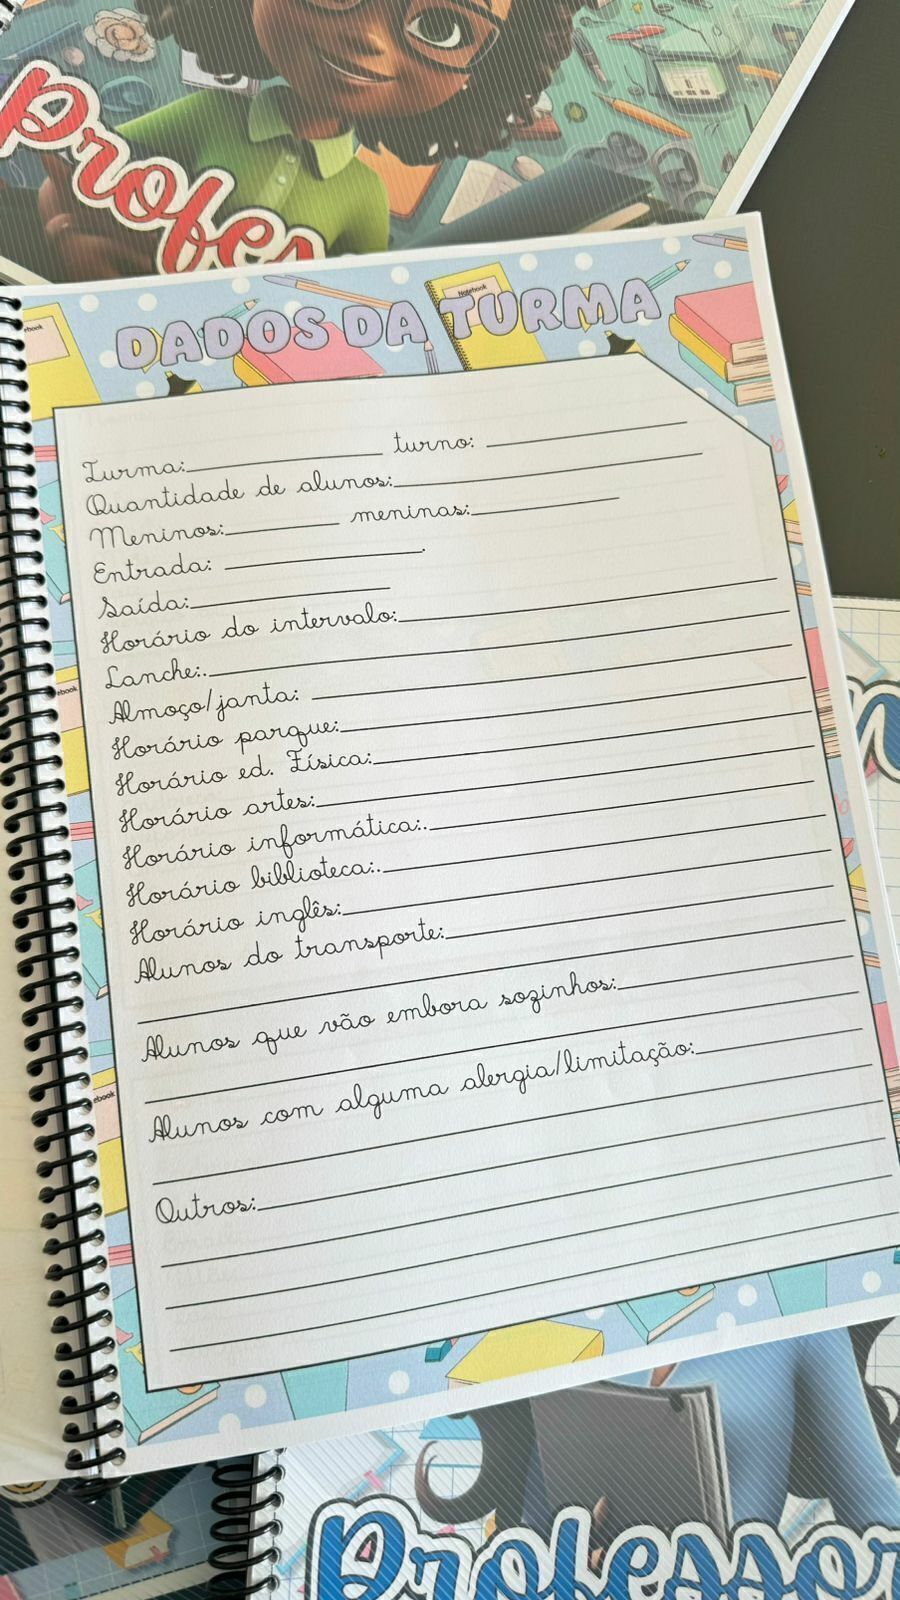 Profes
Notebook
DADOS DA TURMA
Turma: turno:
Quantidade de alunos:
Meninos: meninas:
Entrada: .
Saída:
Horário do intervalo:
Lanche:.
Almoço/janta:
Horário parque:
Horário ed. Física:
Horário artes:
Horário informática:.
Horário biblioteca:.
Horário inglês:
Alunos do transporte:
Alunos que vão embora sozinhos:
Alunos com alguma alergia/limitação:
Outros:
Professor